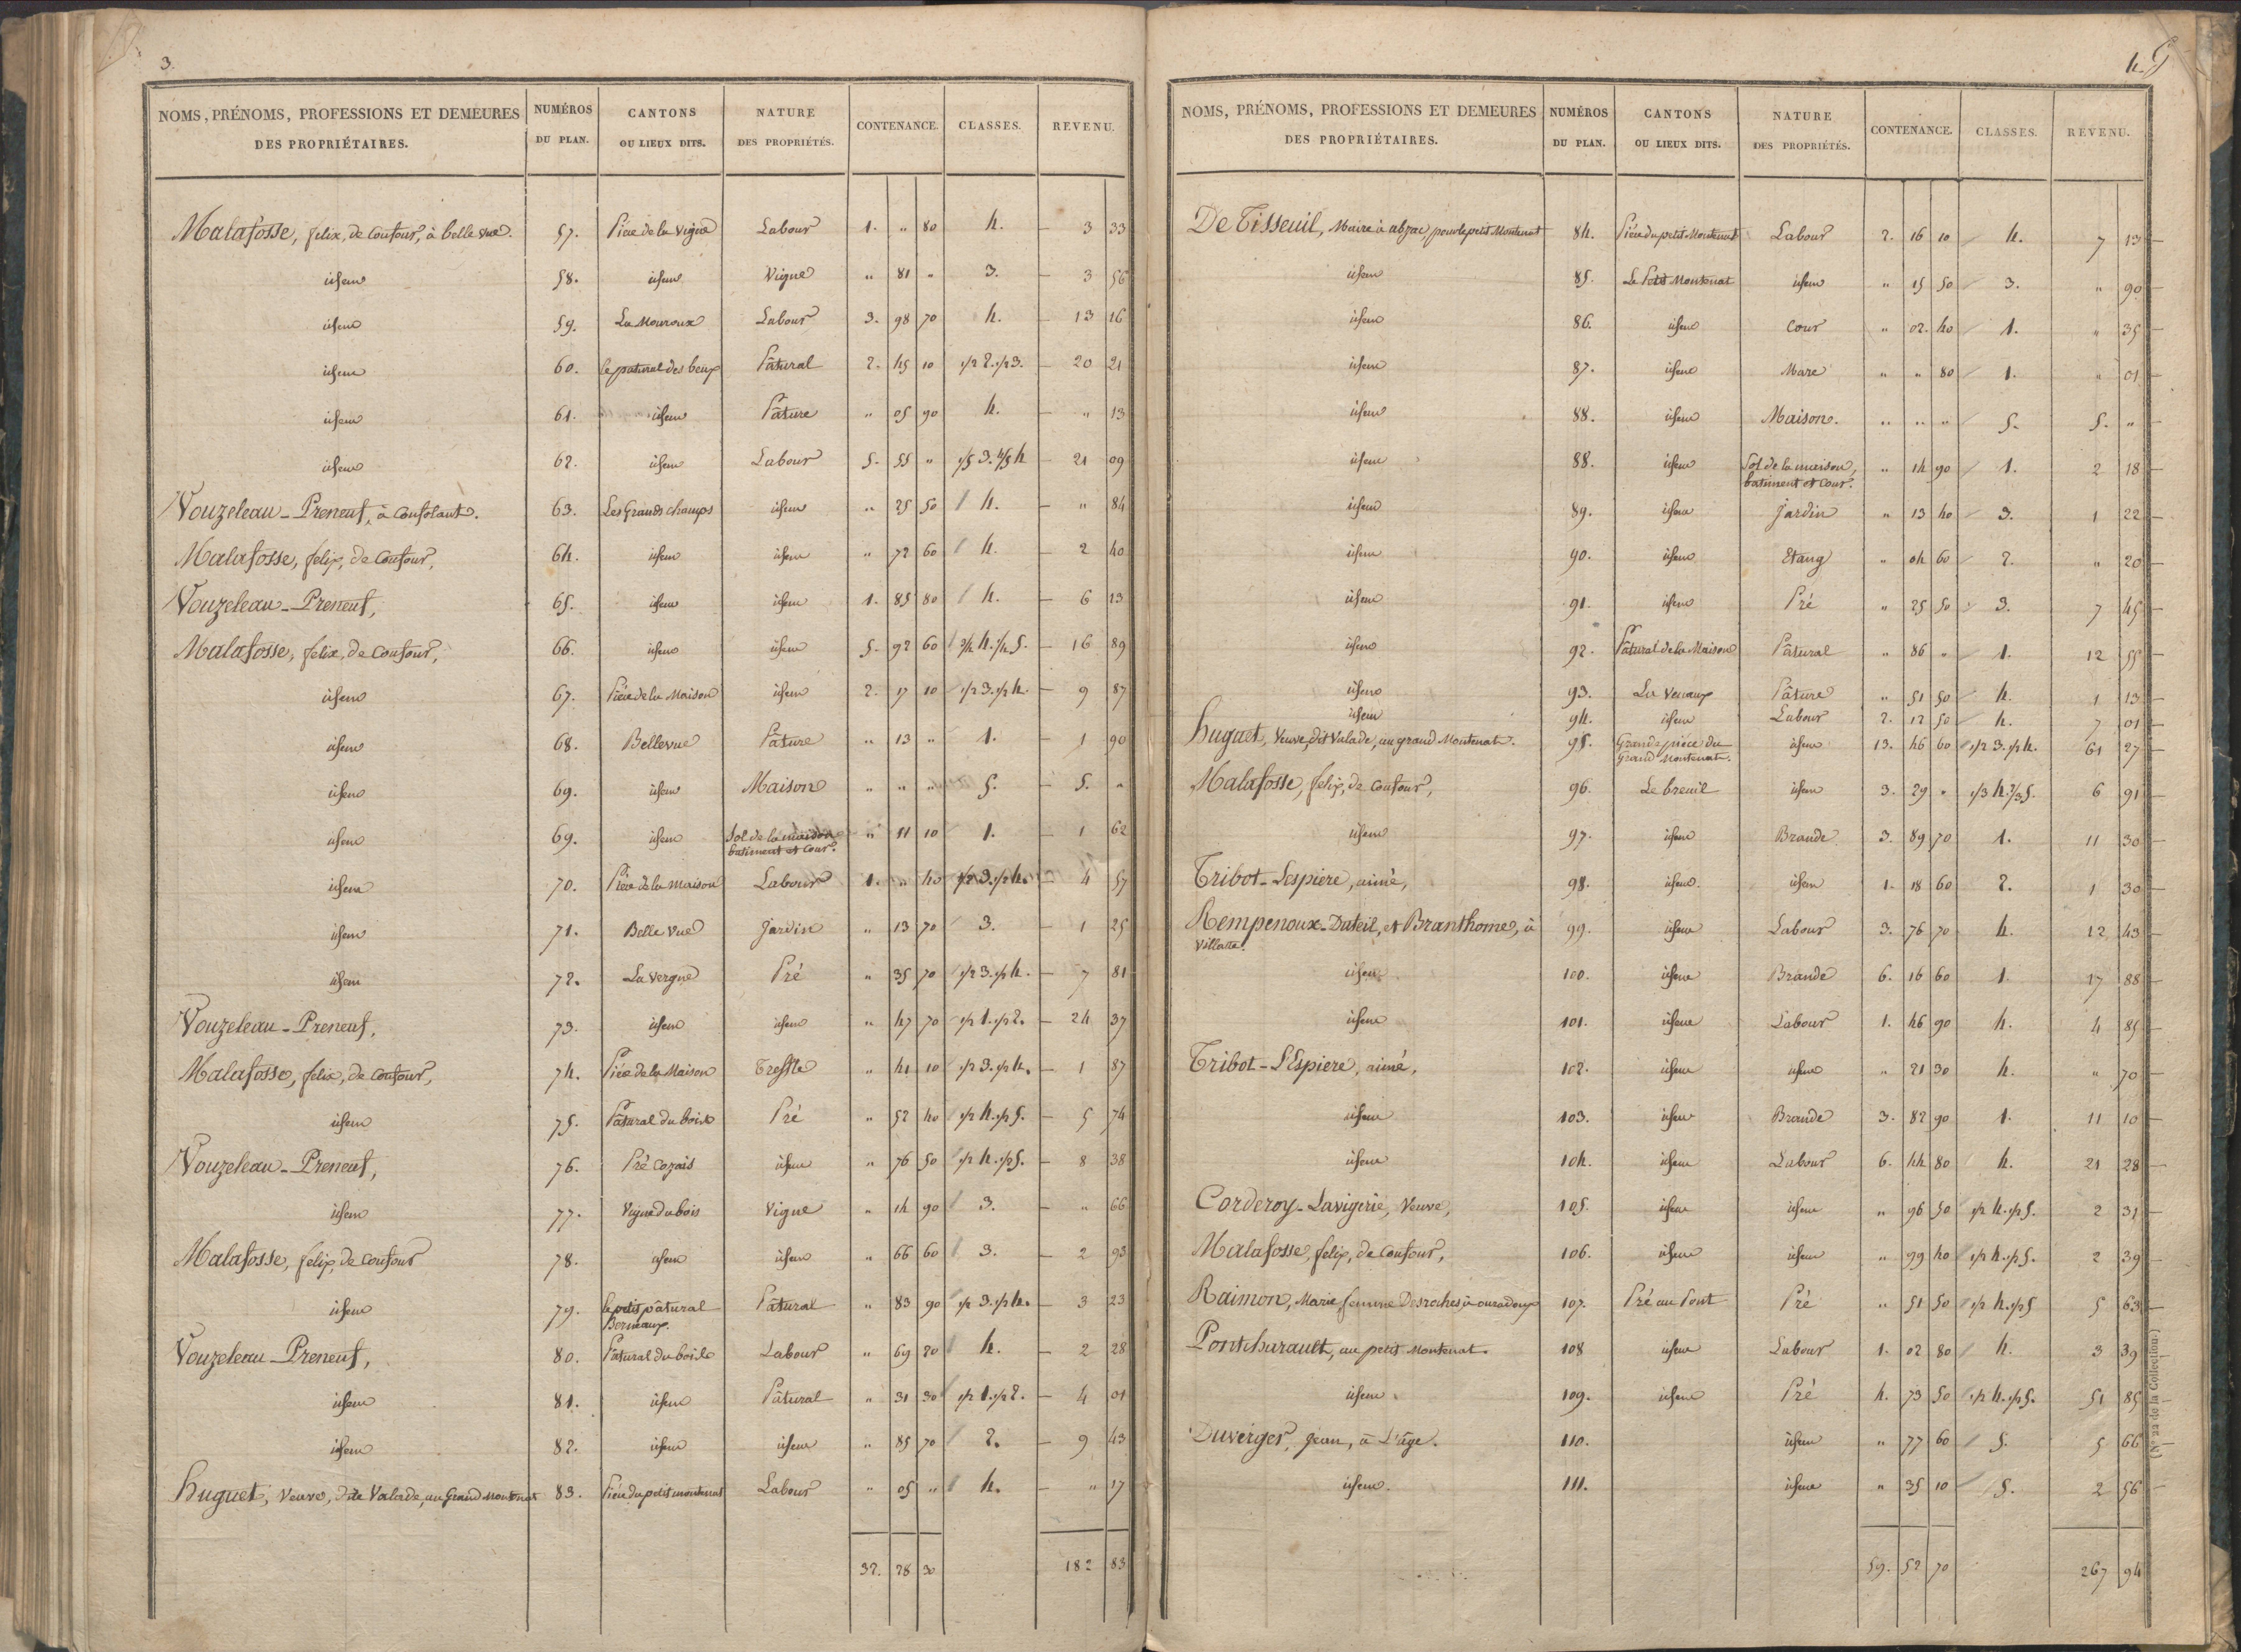 3.
NOMS, PRÉNOMS, PROFESSIONS ET DEMEURES DES PROPRIÉTAIRES. NUMÉROS DU PLAN. CANTONS OU LIEUX DITS. NATURE DES PROPRIÉTÉS. CONTENANCE. CLASSES. REVENU.
Malafosse, felix, de Coufour, à belle vue. 57. Pièce de la Vigne Labour 1. " 80 4. 3 33
idem 58. idem Vigne " 81 " 3. 3 56
idem 59. La Mouroux Labour 3. 98 70 4. 13 16
idem 60. le patural des beux Pâtural 2. 45 10 1/2 2. 1/2 3. 20 21
idem 61. idem Pâture " 05 90 4. " 13
idem 62. idem Labour 5. 55 " 1/5 3. 4/5 4 21 09
Vouzeleau-Preneuf, à Confolant. 63. Les Grands champs idem " 25 50 4. " 84
Malafosse, felix, de Coufour, 64. idem idem " 72 60 4. 2 40
Vouzeleau-Preneuf, 65. idem idem 1. 85 80 4. 6 13
Malafosse, felix, de Coufour, 66. idem idem 5. 92 60 3/4 4. 1/4 5. 16 89
idem 67. Pièce de la Maison idem 2. 17 10 1/2 3. 1/2 4. 9 87
idem 68. Bellevue Pâture " 13 " 1. 1 90
idem 69. idem Maison " " " 5. 5. "
idem 69. idem Sol de la maison, batiment et Cour. " 11 10 1. 1 62
idem 70. Pièce de la maison Labour 1. " 40 1/2 3. 1/2 4. 4 57
idem 71. Belle Vue Jardin " 13 70 3. 1 25
idem 72. La Vergne Pré " 35 70 1/2 3. 1/2 4. 7 81
Vouzeleau-Preneuf, 73. idem idem " 47 70 1/2 1. 1/2 2. 24 37
Malafosse, felix, de Coufour, 74. Pièce de la Maison Treffle " 41 10 1/2 3. 1/2 4. 1 87
idem 75. Pâtural du bois Pré " 52 40 1/2 4. 1/2 5. 5 74
Vouzeleau-Preneuf, 76. Pré Cozais idem " 76 50 1/2 4. 1/2 5. 8 38
idem 77. Vigne du bois Vigne " 14 90 3. " 66
Malafosse, felix, de Coufour 78. idem idem " 66 60 3. 2 93
idem 79. le petit pâtural Pâtural " 83 90 1/2 3. 1/2 4. 3 23
Vouzeleau-Preneuf, 80. Pâtural du bois Labour " 69 20 4. 2 28
idem 81. idem Pâtural " 31 30 1/2 1. 1/2 2. 4 01
idem 82. idem idem " 85 70 2. 9 43
Huguet, Veuve, dite Valade, au Grand Montenat 83. Pièce du petit montenat Labour " 05 " 4. " 17
37. 28 30 182 83
4.
NOMS, PRÉNOMS, PROFESSIONS ET DEMEURES DES PROPRIÉTAIRES. NUMÉROS DU PLAN. CANTONS OU LIEUX DITS. NATURE DES PROPRIÉTÉS. CONTENANCE. CLASSES. REVENU.
De Tisseuil, Maire à abzac, pour le petit Montenat 84. Pièce du petit Montenat Labour 2. 16 10 4. 7 13
idem 85. Le Petit Montenat idem " 15 50 3. " 90
idem 86. idem Cour " 02. 40 1. " 35
idem 87. idem Mare " " 80 1. " 01
idem 88. idem Maison. " " " 5. 5. "
idem 88. idem Sol de la maison, batiment et Cour. " 14 90 1. 2 18
idem 89. idem Jardin " 13 40 3. 1 22
idem 90. idem Etang " 04 60 2. " 20
idem 91. idem Pré " 25 50 3. 7 45
idem 92. Pâtural de la Maison Pâtural " 86 " 1. 12 55
idem 93. La Venaux Pâture " 51 50 4. 1 13
idem 94. idem Labour 2. 12 50 4. 7 01
Huguet, Veuve, dit Valade, au grand Montenat. 95. Grande pièce du Grand Montenat. idem 13. 46 60 1/2 3. 1/2 4. 61 27
Malafosse, felix, de Coufour, 96. Le breuil idem 3. 29 " 1/3 4. 2/3 5. 6 91
idem 97. idem Brande 3. 89 70 1. 11 30
Tribot-Lespiere, aimé, 98. idem idem 1. 18 60 2. 1 30
Rempenoux-Duteil, et Branthome, à Villatte. 99. idem Labour 3. 76 70 4. 12 43
idem 100. idem Brande 6. 16 60 1. 17 88
idem 101. idem Labour 1. 46 90 4. 4 85
Tribot-L'Espiere, aimé, 102. idem idem " 21 30 4. " 70
idem 103. idem Brande 3. 82 90 1. 11 10
idem 104. idem Labour 6. 44 80 4. 21 28
Corderoy-Lavigerie, Veuve, 105. idem idem " 96 50 1/2 4. 1/2 5. 2 31
Malafosse, felix, de Coufour, 106. idem idem " 99 40 1/2 4. 1/2 5. 2 39
Raimon, Marie femme Desroches à ouradoux 107. Pré au Pont Pré " 51 50 1/2 4. 1/2 5 5 63
Pontcharault, au petit Montenat. 108 idem Labour 1. 02 80 4. 3 39
idem 109. idem Pré 4. 73 50 1/2 4. 1/2 5. 51 85
Duverger, Jean, à L'âge. 110. idem " 77 60 5. 5 66
idem. 111. idem " 35 10 5. 2 56
59. 52 70 267 94
(N° 22 de la Collection.)